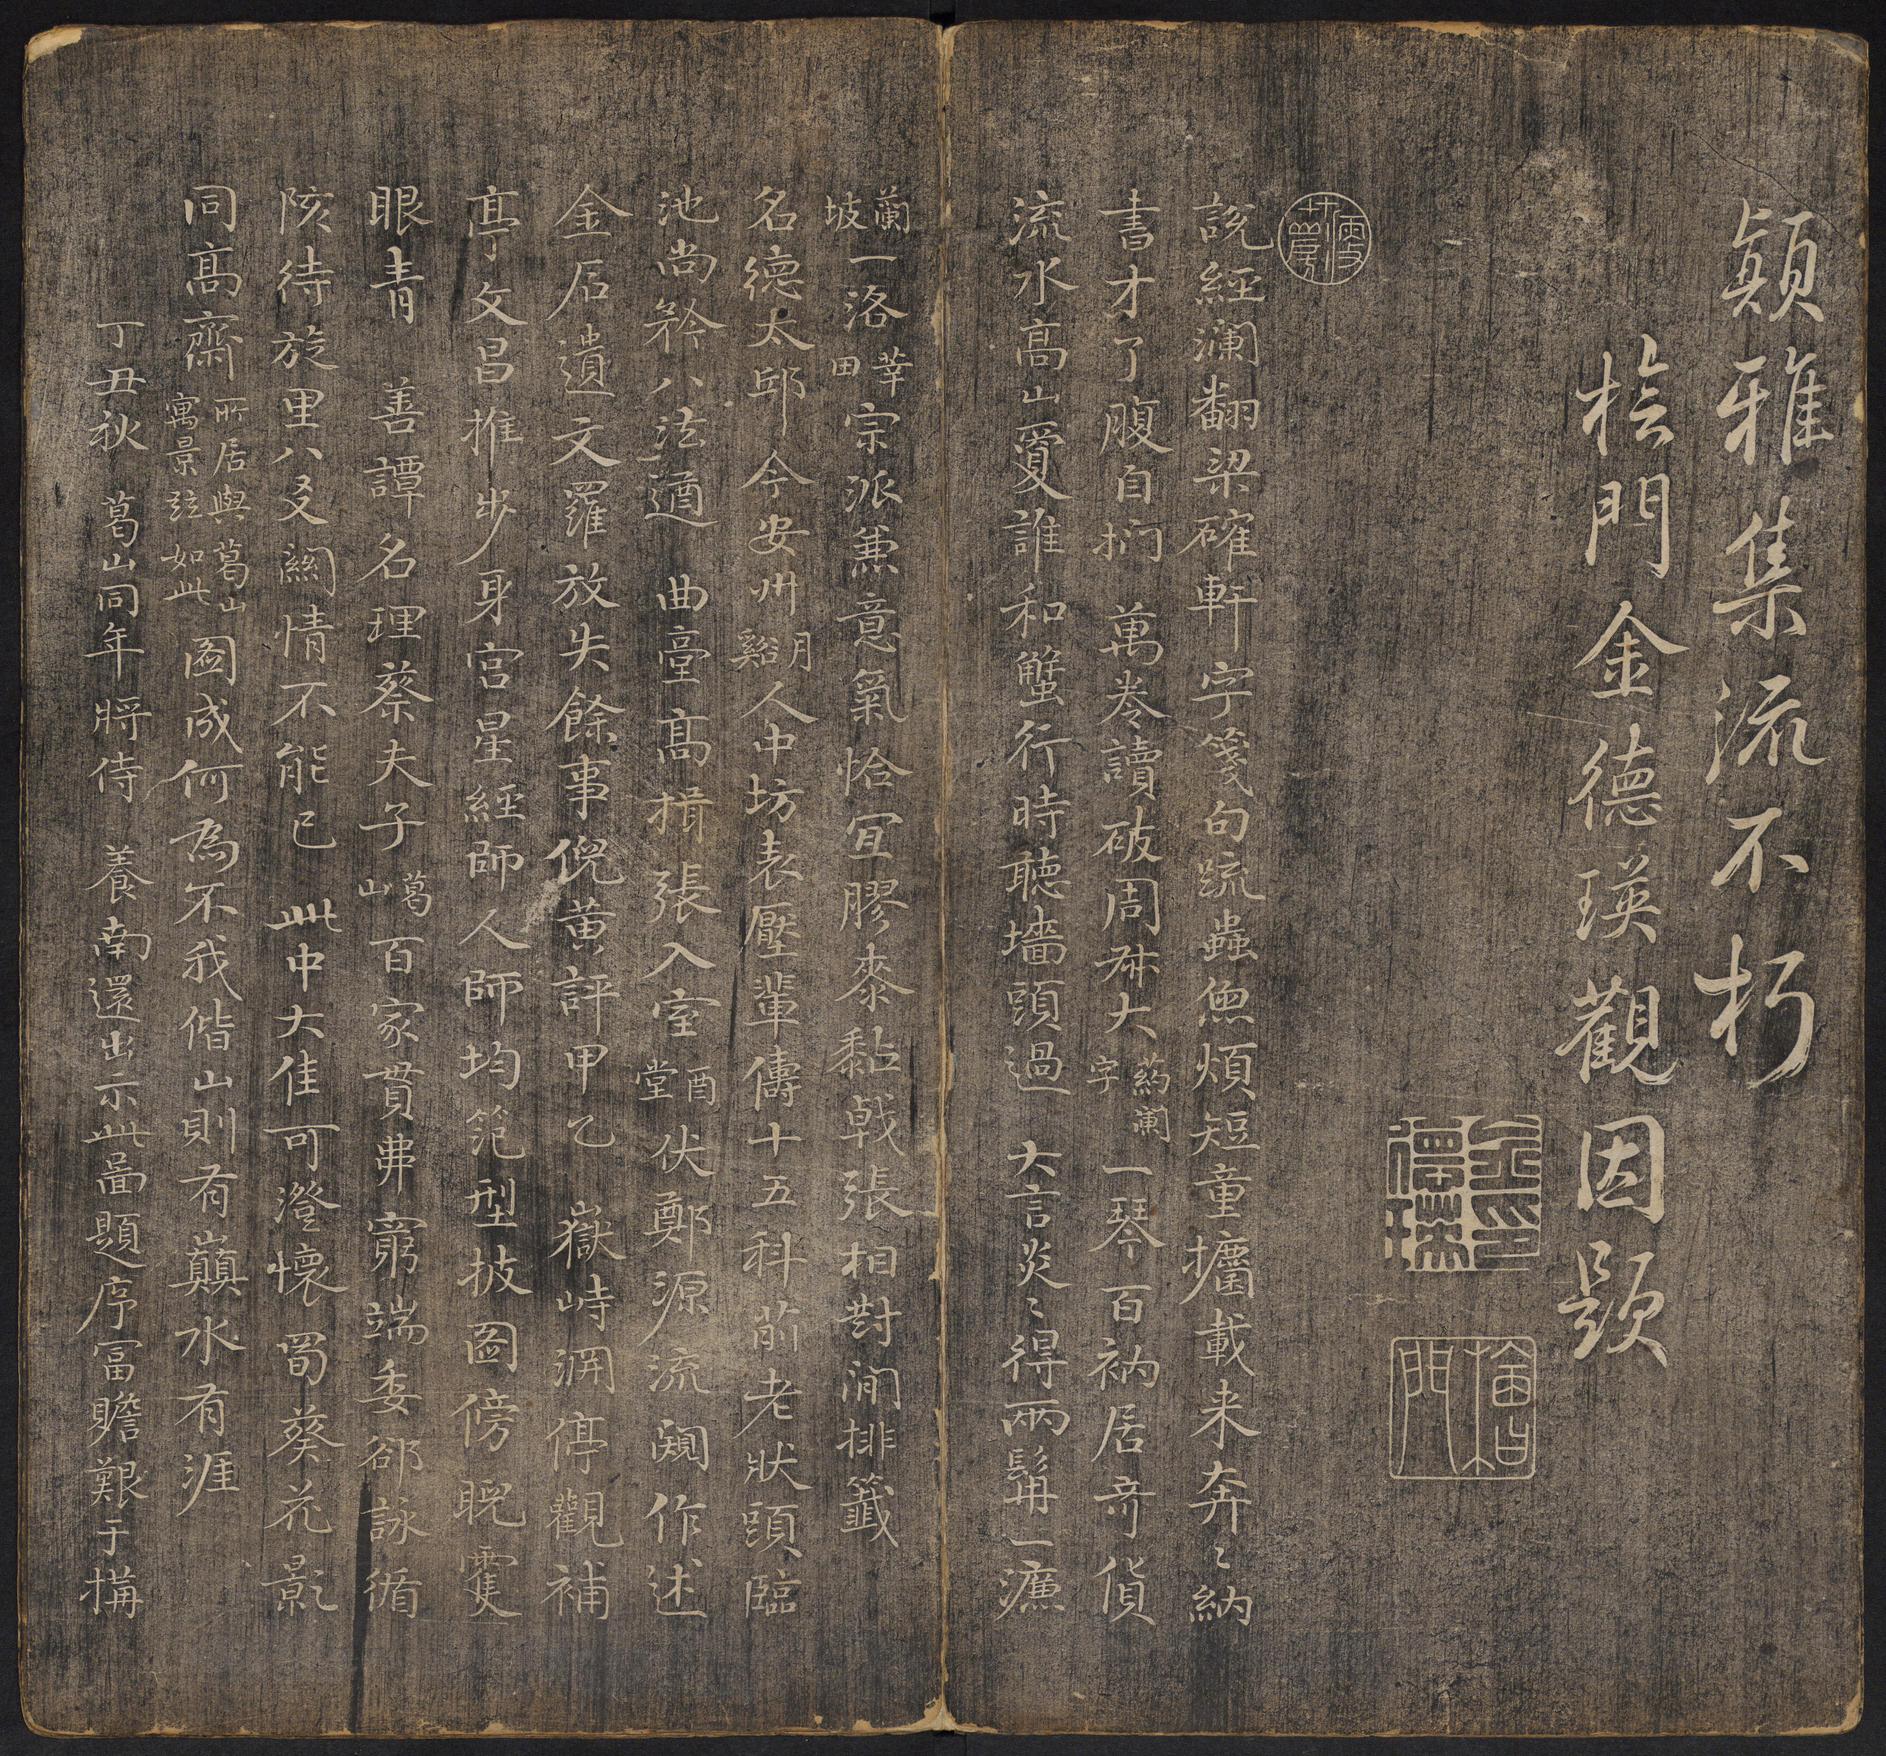 穎雅集流不朽
桧門金德瑛觀因題
金印德瑛
檜門
說經瀾翻梁確軒字箋句疏蟲魚煩短童攟載来奔〻納
書才了腹自捫 萬卷讀破周希大葯闌字一琴百衲居奇貨
流水高山夐誰和蟹行時聽墻頭過 大言炎〻得兩髯一濂
蘭坡一洛莘田宗派兼意氣恰宜膠桼黏戟張相對閒排籤
名德太邱今安卅月谿人中坊表壓輩儔十五科前老狀頭臨
池尚矜八法遒 曲臺高揖張入室酉堂伏鄭源流闚作述
金石遺文羅放失餘事倪黃評甲乙 嶽峙淵停觀補
亭文昌推步身宮星經師人師均笵型披圖傍睨雙
眼青 善譚名理蔡夫子葛山百家貫弗窮端委郤詠循
陔待旋里八爻關情不能已 此中大隹可澄懷蜀葵花影
同高齋所居與葛山寓景竝如此圖成何為不我偕山則有巔水有涯
丁丑秋 葛山同年將侍 養南還出示此啚題序冨贍艱于構